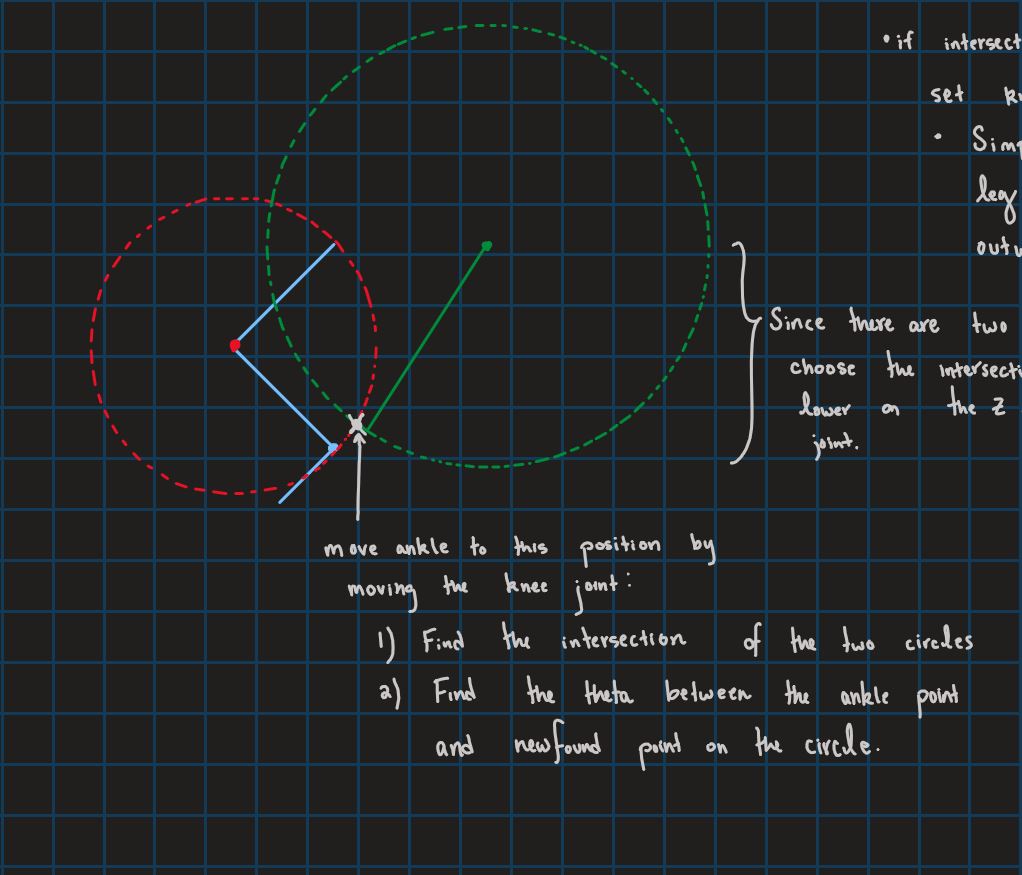 • if intersect
set
• Sim
leg
Since there are two
choose the intersecti
lower on the z
joint.
move ankle to this position by
moving the knee joint:
1) Find the intersection of the two circles
2) Find the theta between the ankle point
and newfound point on the circle.